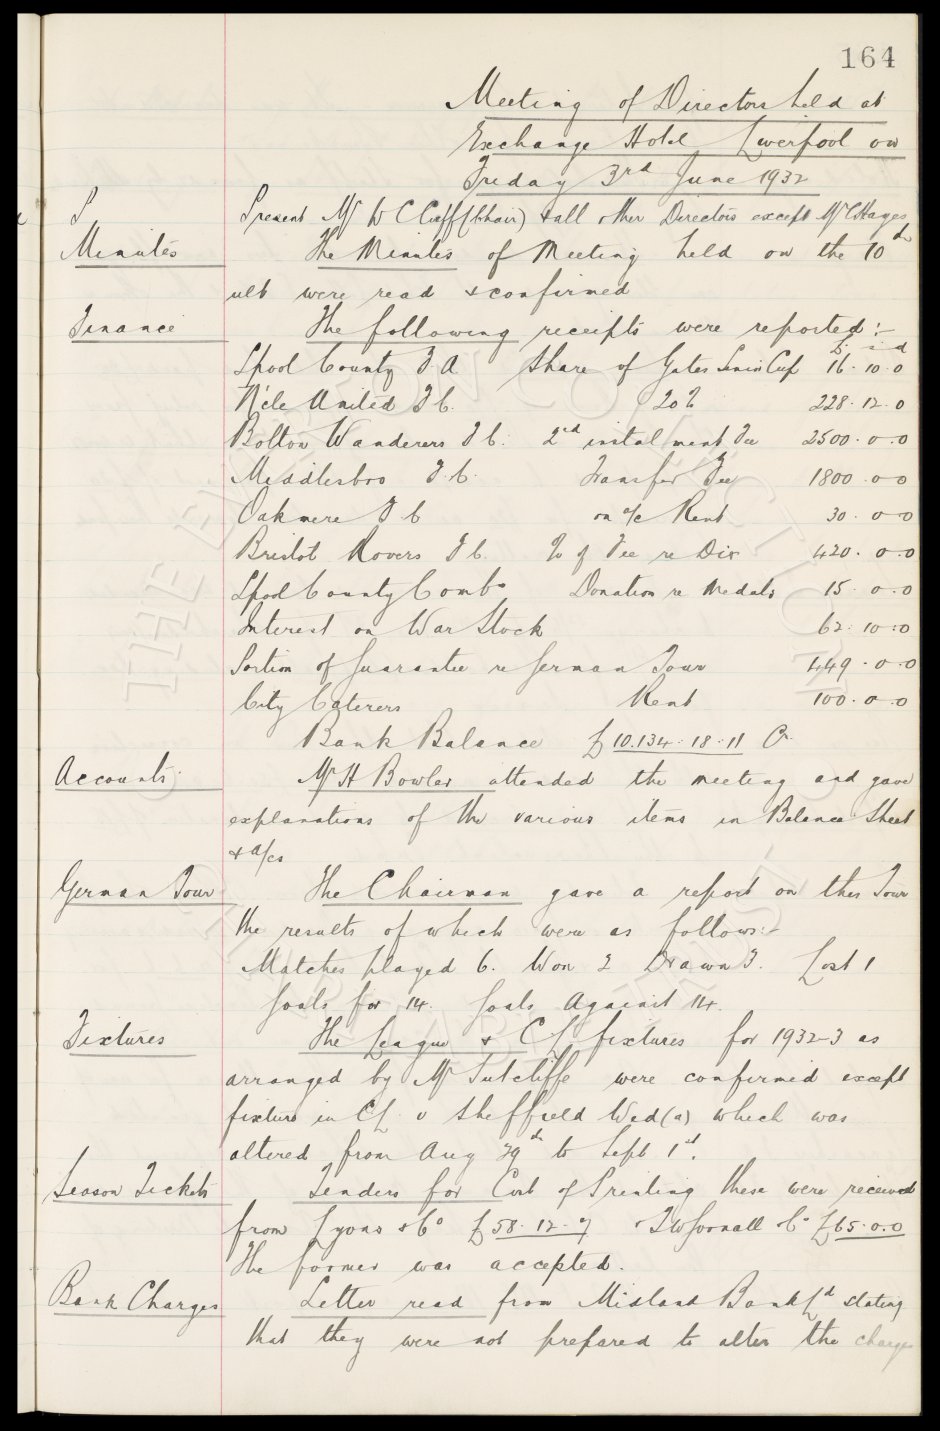 164
Meeting of Directors held at
Exchange Hotel Liverpool on
Friday 3rd June 1932
P
Present Mr W C Cuff (Chair) & all other Directors except Mr C Hayes
Minutes The Minutes of Meeting held on the 10th
ult were read & confirmed
Finance The following receipts were reported :-
£ s d
Lpool County F.A Share of Gates Senior Cup 16 . 10 . 0
N'cle United F C. 20% 228 . 12 . 0
Bolton Wanderers F C. 2nd instalment Fee 2500 . 0 . 0
Middlesbro F.C. Transfer Fee 1800 . 0 0
Oakmere F C on a/c Rent 30 . 0 0
Bristol Rovers F C. % of Fee re Dix 420 . 0 . 0
Lpool County Combo Donation re Medals 15 . 0 . 0
Interest on War Stock 62 . 10 : 0
Portion of Guarantee re German Tour 449 . 0 . 0
City Caterers Rent 100 . 0 . 0
Bank Balance £10.134 : 18 : 11 Cr
Accounts Mr H Bowler attended the meeting and gave
explanations of the various items in Balance Sheet
& a/cs
German Tour The Chairman gave a report on this Tour
the results of which were as follows :-
Matches played 6. Won 2 Drawn 3. Lost 1
Goals for 14. Goals Against 14.
Fixtures The League & C L fixtures for 1932-3 as
arranged by Mr Sutcliffe were confirmed except
fixture in CL. v Sheffield Wed (a) which was
altered from Aug 29th to Sept 1st.
Season Tickets Tenders for Cost of Printing these were received
from Lyons & Co £58 . 12 . 7 & Goodall & Co £65 . 0 . 0
The former was accepted.
Bank Charges Letter read from Midland Bank Ld stating
that they were not prepared to alter the charges